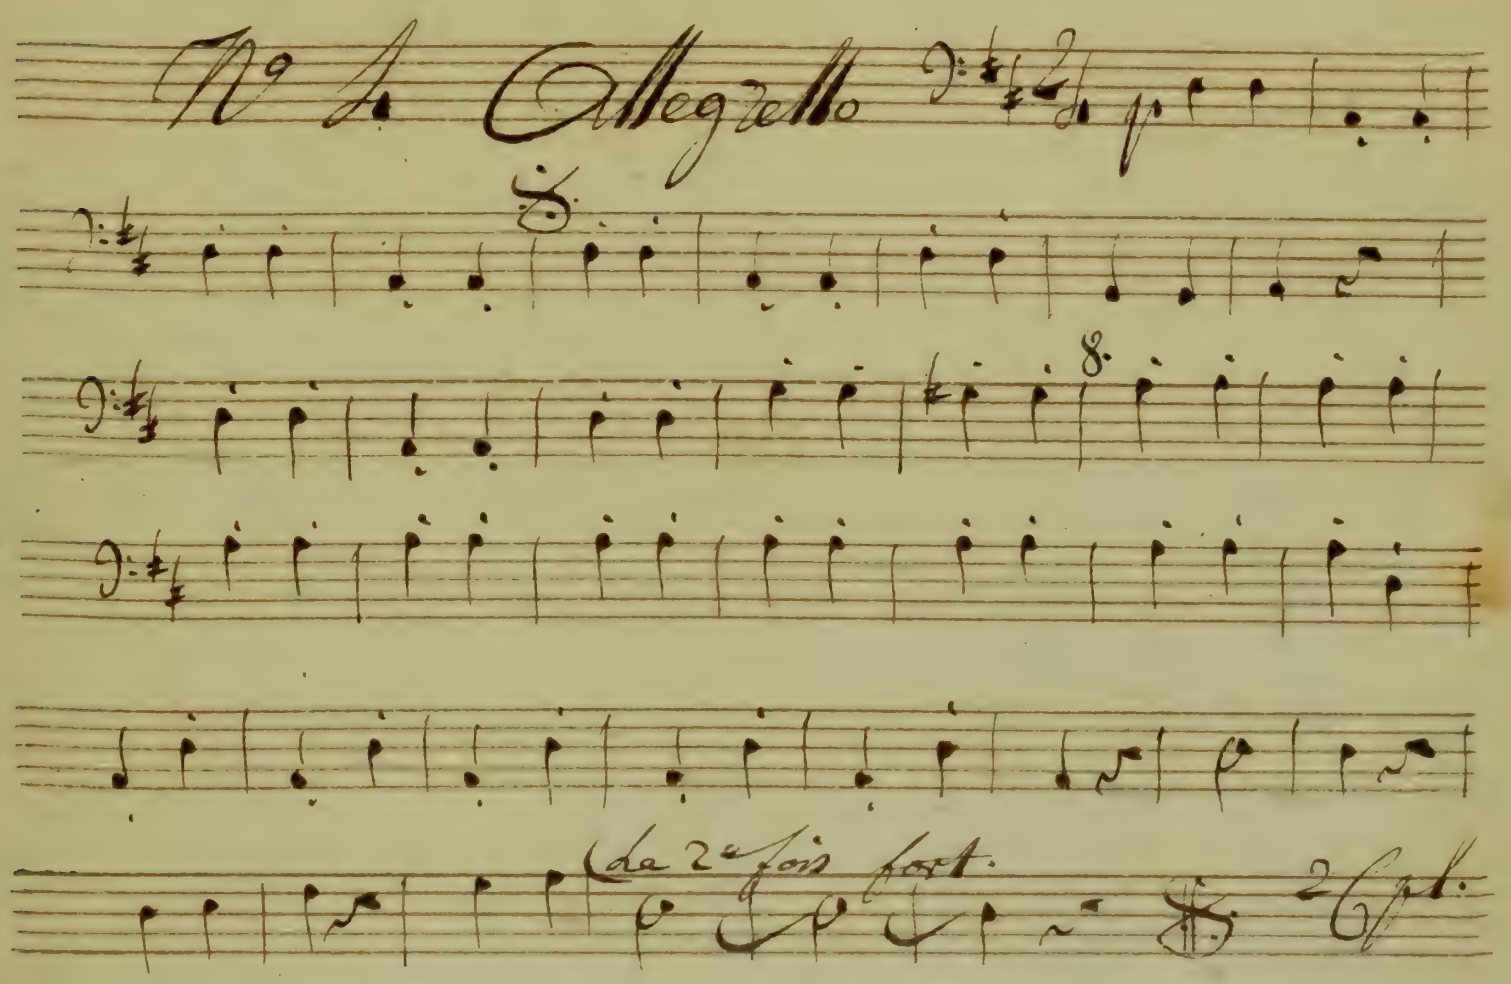 Nº 4 Allegretto 2 4 p
8.
La 2e fois fort.
2 Cpl.